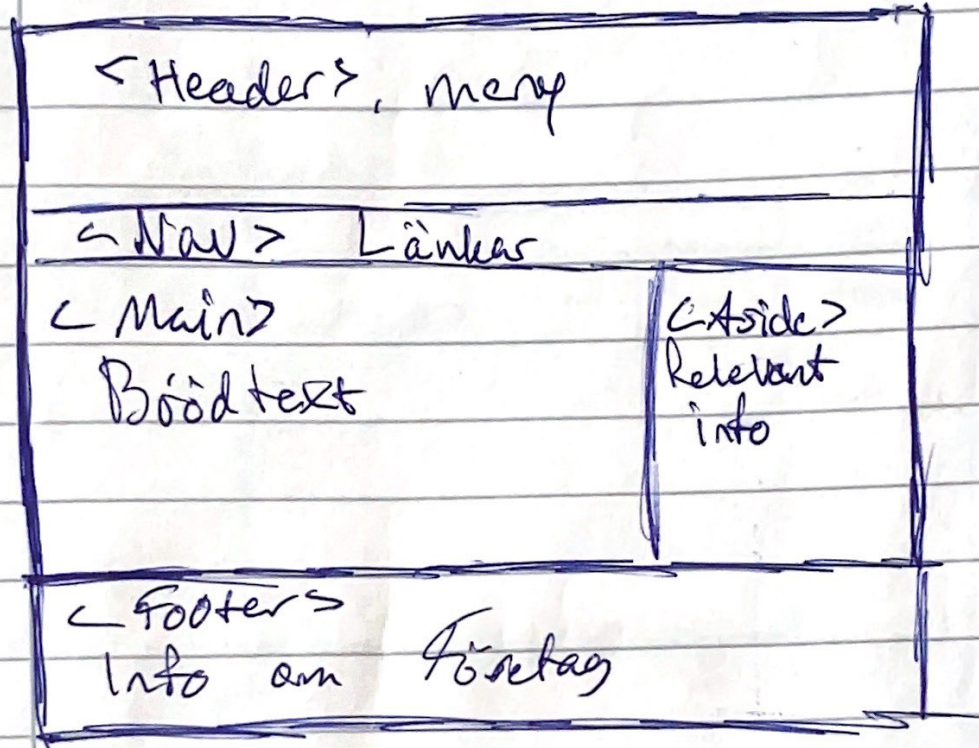 <Header>, meny
<Nav> Länkar
<Main>
Brödtext
<Aside>
Relevant
info
<Footer>
Info om Företag